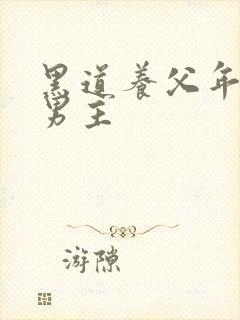 黑道养父年
男主
游隙